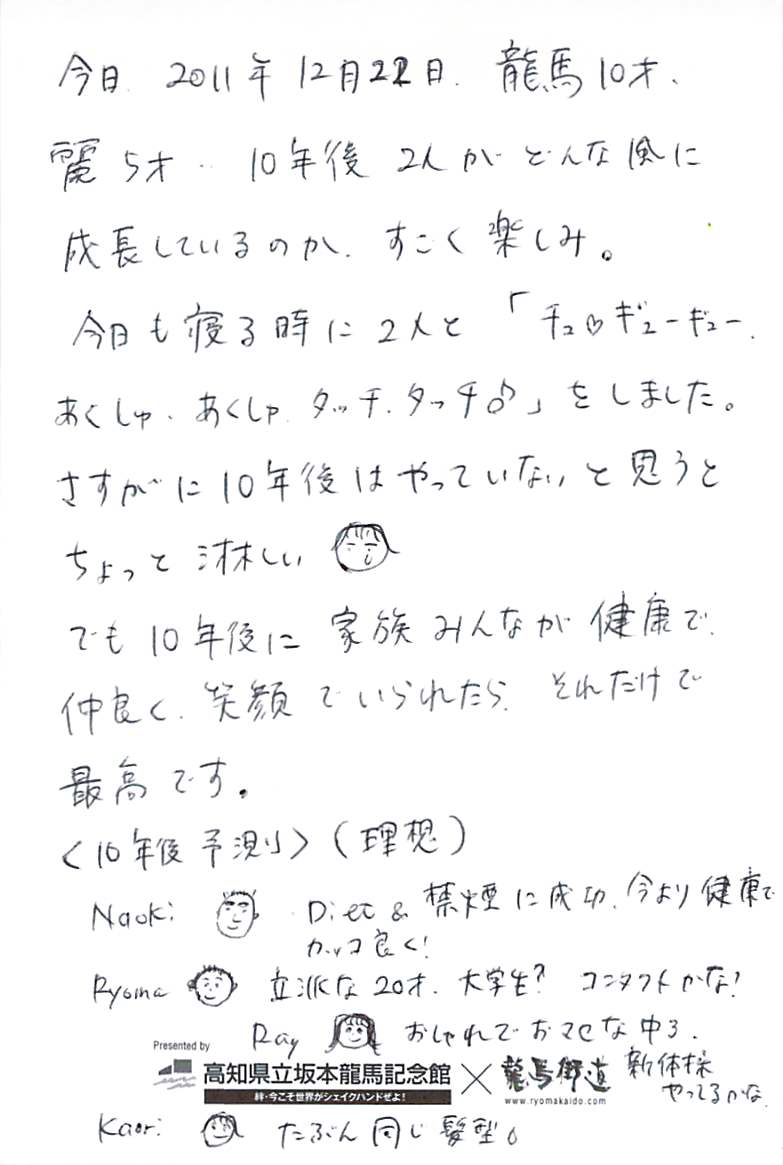 今日 2011年 12月22日. 龍馬10才、
麗5才‥ 10年後 2人がどんな風に
成長しているのか、すごく楽しみ。
今日も寝る時に2人と「チュ♡ギューギュー、
あくしゅ、あくしゅ、タッチ、タッチ♪」をしました。
さすがに10年後はやっていないと思うと
ちょっと淋しい
でも10年後に家族みんなが健康で、
仲良く、笑顔でいられたら、それだけで
最高です。
<10年後予測>(理想)
Naoki Diet & 禁煙に成功、今より健康で
カッコ良く!
Ryoma 立派な20才、大学生? コンタクトかな?
Ray おしゃれでおマセな中3、
新体操
やってるかな
Presented by
高知県立坂本龍馬記念館 × 龍馬街道
絆・今こそ世界がシェイクハンドぜよ!
www.ryomakaido.com
Kaori たぶん同じ髪型。